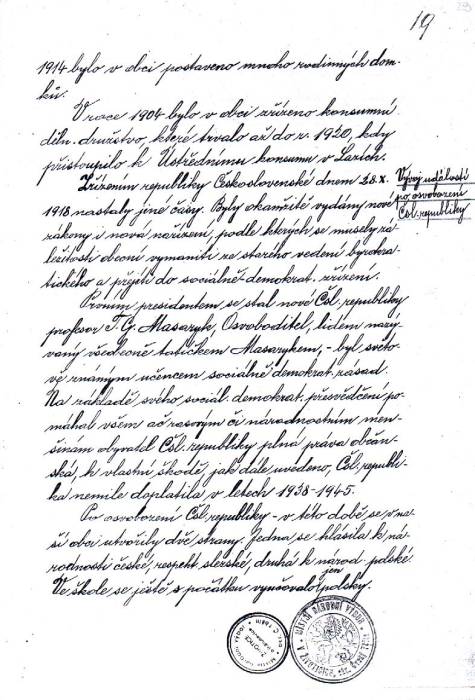 19
1914 bylo v obci postaveno mnoho rodinných dom-
ků.
V roce 1904 bylo v obci zřízeno konsumní
děln. družstvo, které trvalo až do r. 1920, kdy
přistoupilo k Ústřednímu konsumu v Lazích.
Zřízením republiky Československé dnem 28.X.
1918 nastaly jiné časy. Byly okamžitě vydány nové
zákony i nová nařízení, podle kterých se musely zá-
ležitosti obecní vymaniti ze starého vedení byrokra-
tického a přejíti do sociálně-demokrat. zřízení.
Vývoj událostí
po osvobození
Čsl. republiky
Prvním presidentem se stal nové Čsl. republiky
profesor T. G. Masaryk, Osvoboditel, lidem nazý-
vaný všeobecně tatíčkem Masarykem, - byl světo-
vě známým učencem sociálně demokrat. zásad.
Na základě svého sociál. demokrat. přesvědčení po-
máhal všem ať rasovým či národnostním men-
šinám obyvatel Čsl. republiky plná práva občan-
ská, k vlastní škodě, jak dále uvedeno, Čsl. republi-
ka nemile doplatila v letech 1938-1945.
Po osvobození Čsl. republiky - v této době se v na-
ší obci utvořily dvě strany. Jedna se hlásila k ná-
rodnosti české, respekt. slezské, druhá k národ. polské.
Ve škole se ještě s počátku vyučovalo jen polsky.
MÍSTNÍ NÁRODNÍ VÝBOR